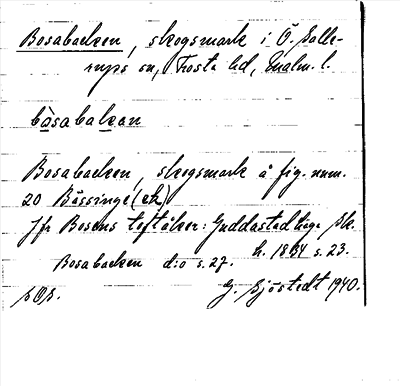 Bosabacken, skogsmark i Ö. Salle-
rups sn, Frosta hd, Malm. l.
bàsabakan
Bosabacken, skogsmark å fig. num.
20 Bässinge (ek)
Jfr Bosens toftåker: Guddastad
Bosabacken d:o s. 27. h. 1834 s. 23.
G. Sjöstedt 1940.